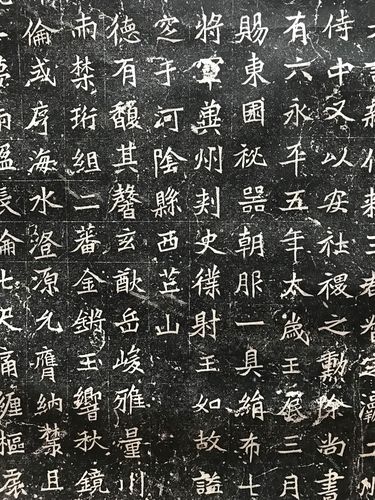 定瀛二州
侍中又以安社稷之勳除尚書
有六永平五年太歲壬辰三月
賜東園秘器朝服一具絹布七
將軍冀州刺史僕財王如故諡
窆于河陰縣西芒山
德有馥其聲玄猷岳峻雅量川
禁珩組二蕃金鏘玉響秋鏡
倫或序海水澄源允膺納禁且
長淪痛纏樞扆